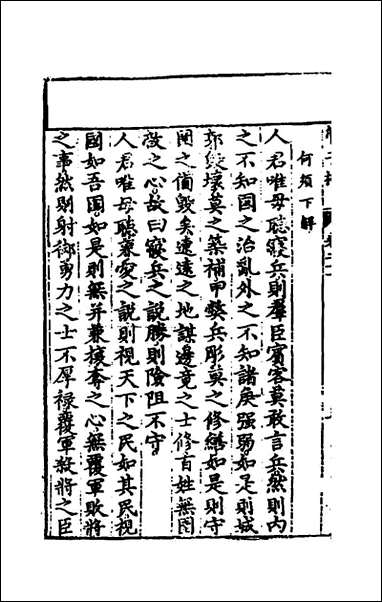 何須下解
人君唯毋聽寢兵則羣臣賓客莫敢言兵然則内
之不知国之治亂外之不知諸侯强弱如是則城
郭毀壞莫之築補甲弊兵彫莫之修繕如是則守
圉之備毀矣遼遠之地謀邊竟之士修百姓無圉
敵之心故曰寢兵之說勝則險阻不守
人君唯毋聽兼愛之說則視天下之民如其民視
國如吾國如是則無并兼攘奪之心無覆軍敗將
之事然則射御勇力之士不厚禄覆軍殺將之臣